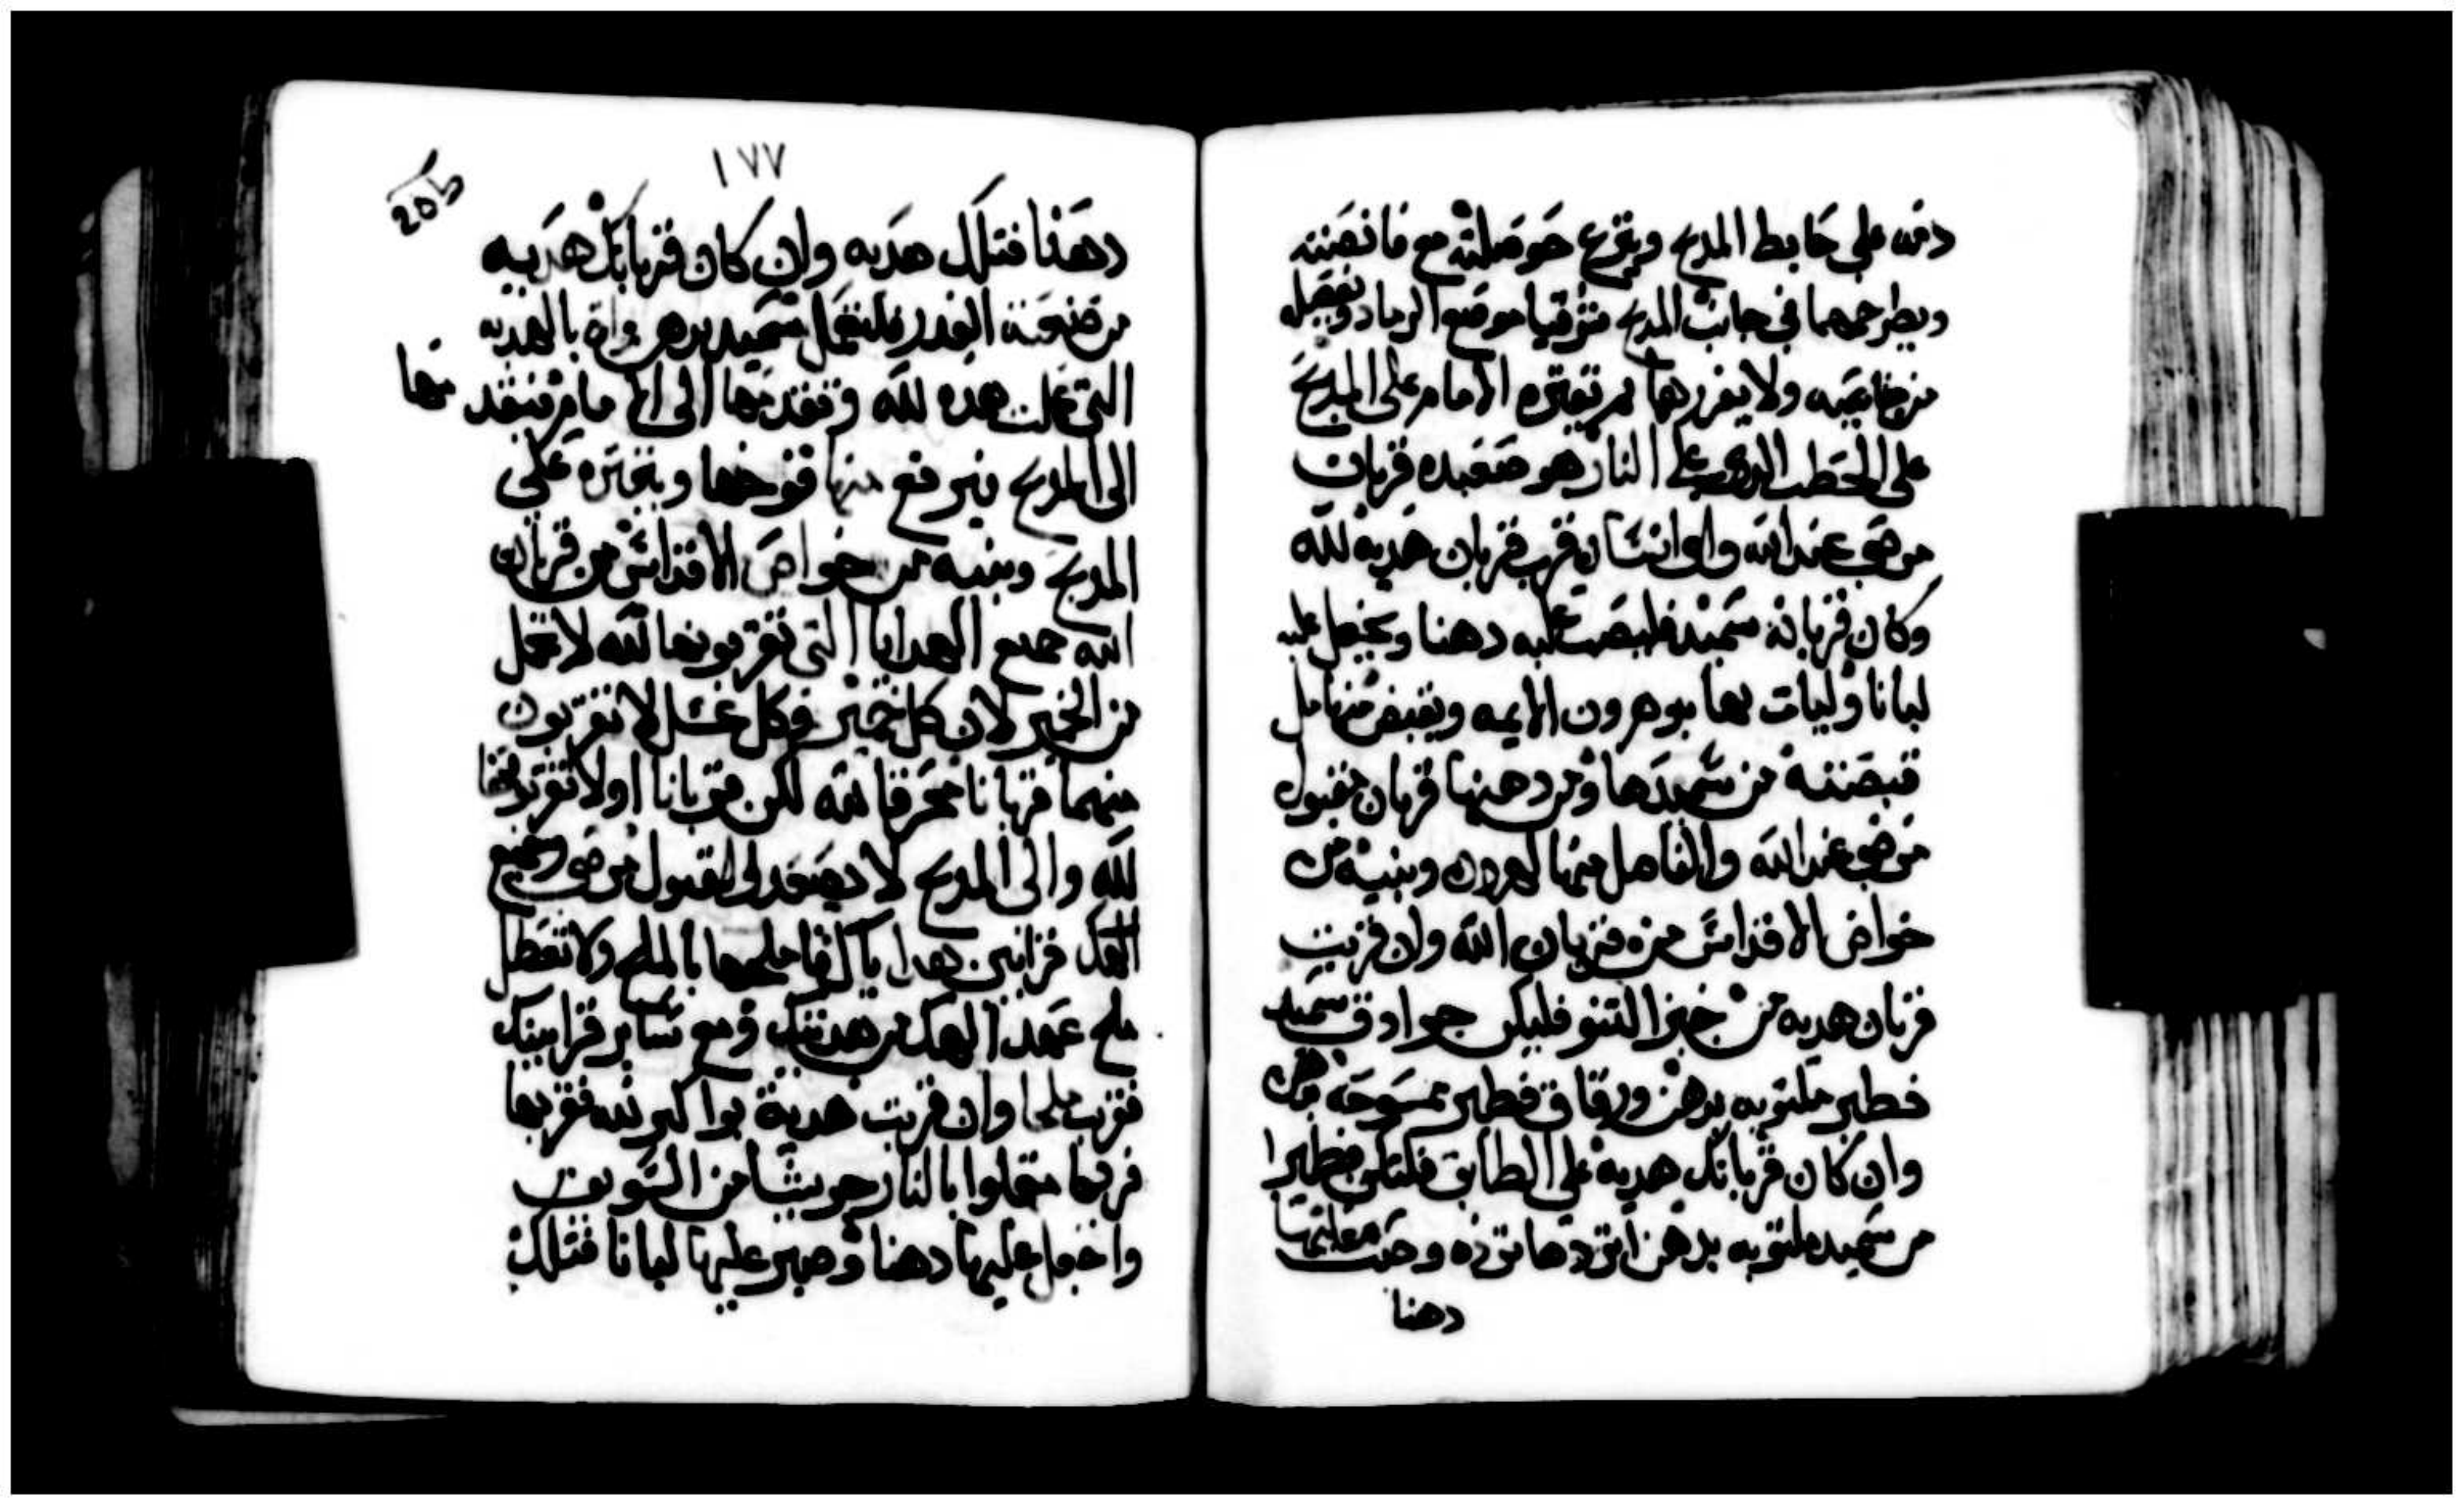 دمه على حايط المدبح وينزع حوصلته مع قانصته
ويطرحهما في جانب المدبح شرقيا موضع الرماد ويفصله
من جناحيه ولا يفرزهما ثم يقتره الامام على المدبح
على الحطب الدي على النار هو صعيده قربان
مرضي عند الله واي انسان يقرب قربان هديه لله
وكان قربانه سميد فليصب عليه دهنا ويجعل عليه
لبانا وليات بها بنو هرون الايمه ويقبض منها مل
قبضته من سميدها ومن دهنها قربان مقبول
مرضي عند الله والفاضل منها لهرون وبنيه من
خواص الاقداس من قربان الله وان قربت
قربان هديه من خبز التنور فليكن جرادق سميد
فطير ملتوته بدهن ورقاق فطير ممسوحه بدهن
وان كان قربانك هديه على الطابق فلتكن فطيرا
من سميد ملتوته بدهن اتردها ترده وصب عليها
دهنا
١٧٧
205
دهنا فتلك هديه وان كان قربانك هديه
من صنعة القدر فلتعمل سميد بدهن وات بالهديه
التي عملت هده لله وتقدمها الى الامام فيتقدم بها
الى المدبح فيرفع منها فوحها ويقتره على
المدبح وبنيه من خواص الاقداس من قربان
الله جميع الهدايا التي تقربونها لله لا تعمل
من الخمير لان كل خمير وكل عسل لا تقربون
منهما قربانا محرقا لله لكن قربانا اولا تقربونها
لله والى المدبح لا يصعد الى القبول مرضي وجميع
قرابين هداياك فاملحها بالملح ولا تعطل
ملح عهد الهك من هديتك ومع ساير قرابينك
تقرب ملحا وان قربت هدية بواكير لله فقربها
فريكا مقلوا بالنار جريشا من السويق
واجعل عليها دهنا وصير عليها لبانا فتلك